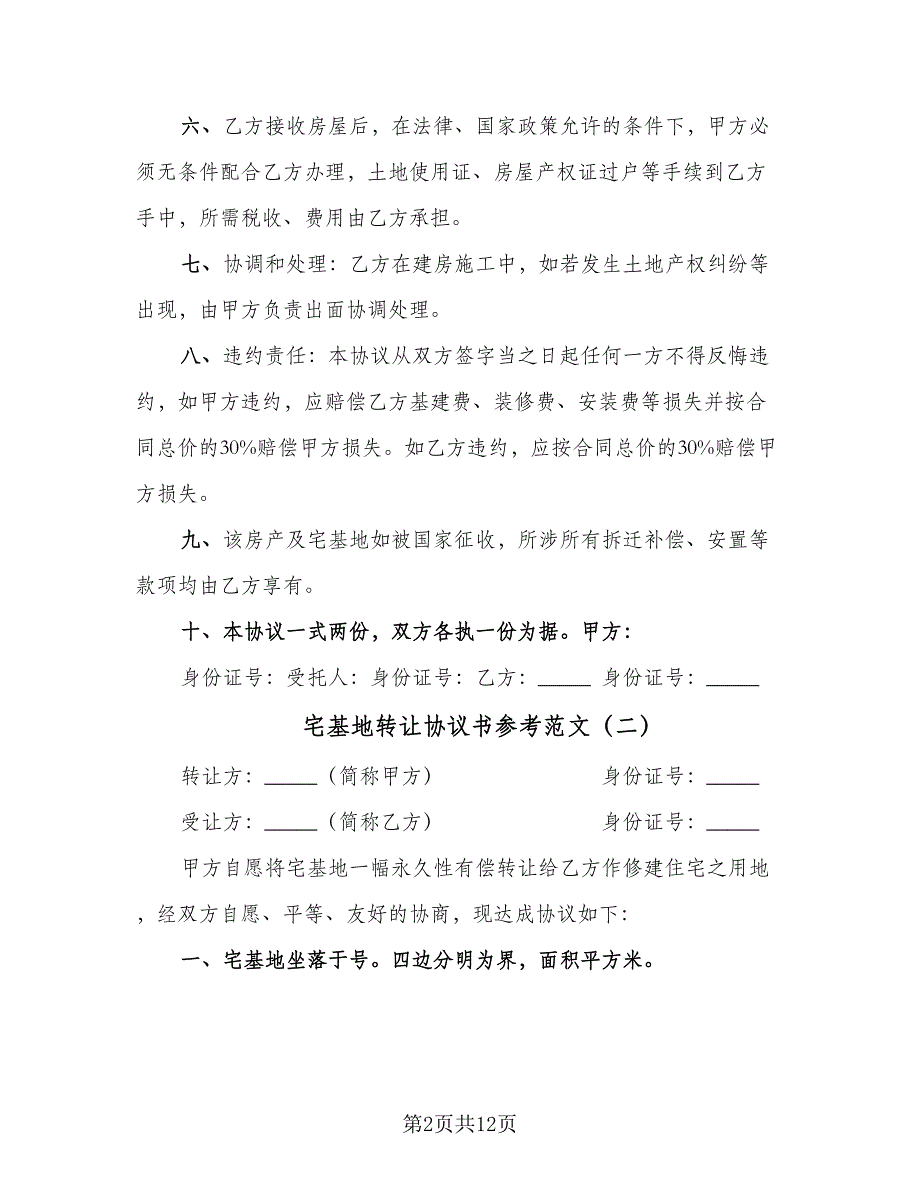 六、乙方接收房屋后，在法律、国家政策允许的条件下，甲方必
须无条件配合乙方办理，土地使用证、房屋产权证过户等手续到乙方
手中，所需税收、费用由乙方承担。
七、协调和处理：乙方在建房施工中，如若发生土地产权纠纷等
出现，由甲方负责出面协调处理。
八、违约责任：本协议从双方签字当之日起任何一方不得反悔违
约，如甲方违约，应赔偿乙方基建费、装修费、安装费等损失并按合
同总价的30%赔偿甲方损失。如乙方违约，应按合同总价的30%赔偿甲
方损失。
九、该房产及宅基地如被国家征收，所涉所有拆迁补偿、安置等
款项均由乙方享有。
十、本协议一式两份，双方各执一份为据。甲方：
身份证号：受托人：身份证号：乙方：_____ 身份证号：_____
宅基地转让协议书参考范文（二）
转让方：_____（简称甲方） 身份证号：_____
受让方：_____（简称乙方） 身份证号：_____
甲方自愿将宅基地一幅永久性有偿转让给乙方作修建住宅之用地
，经双方自愿、平等、友好的协商，现达成协议如下：
一、宅基地坐落于号。四边分明为界，面积平方米。
第2页共12页